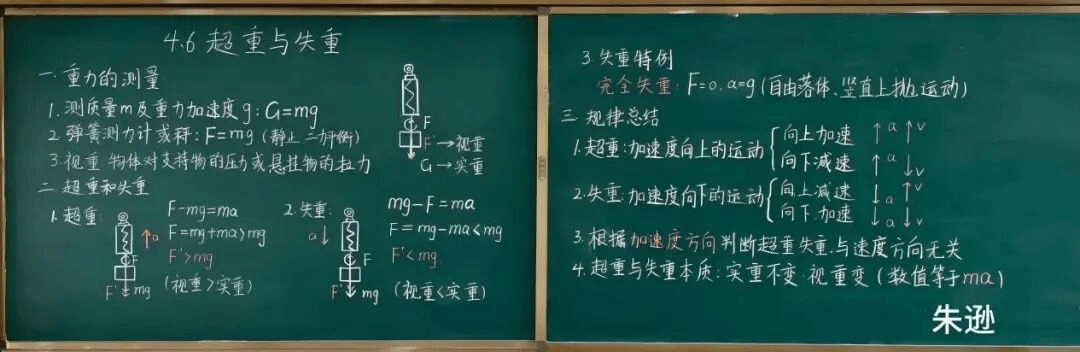 4.6 超重与失重
一.重力的测量
1.测质量m及重力加速度g:G=mg
2.弹簧测力计或秤:F=mg(静止 二力平衡)
3.视重:物体对支持物的压力或悬挂物的拉力
F
F'→视重
G→实重
二.超重和失重
1.超重:
a
F
F' mg
F-mg=ma
F=mg+ma>mg
F'>mg
(视重>实重)
2.失重:
a
F
F' mg
mg-F=ma
F=mg-ma<mg
F'<mg
(视重<实重)
3.失重特例
完全失重:F=0,a=g(自由落体、竖直上抛运动)
三.规律总结
1.超重:加速度向上的运动{向上加速 ↑a↑v
向下减速 ↑a↓v
2.失重:加速度向下的运动{向上减速 ↓a↑v
向下加速 ↓a↓v
3.根据加速度方向判断超重失重,与速度方向无关
4.超重与失重本质:实重不变.视重变(数值等于ma)
朱逊